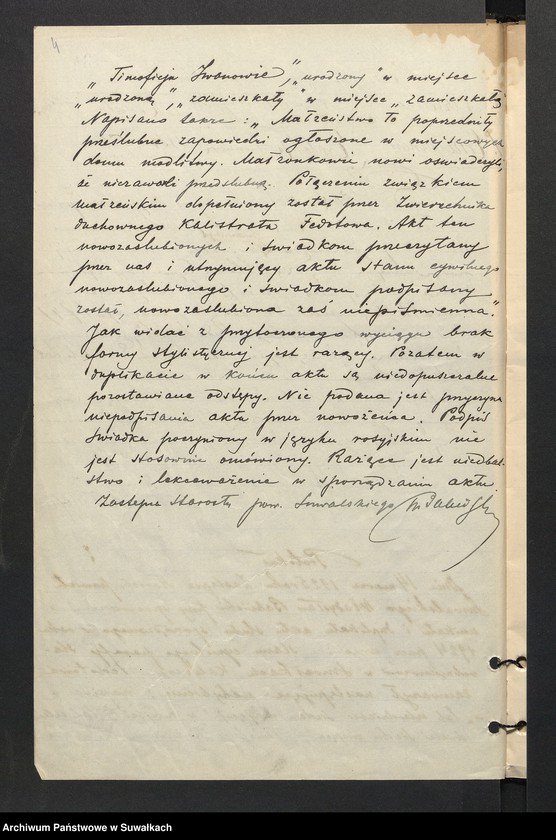 4
„Timofieja Iwanowie”, „urodzony” w miejsce
„urodzona”, „zamieszkały” w miejsce „zamieszkałą
Napisano także: „Małżeństwo to poprzedziły
przedślubne zapowiedzi ogłoszone w miejscowym
domu modlitwy. Małżonkowie nowi oświadczyli,
że nie zawarli przedślubną. Połączeniu związkiem
małżeńskim dopełniony został przez Zwierzchnika
duchownego Kalistrata Fedotowa. Akt ten
nowozaślubionych i świadkom przeczytany
przez nas i utrzymujący aktu stanu cywilnego
nowozaślubionego i świadkom podpisany
został, nowozaślubiona zaś niepiśmienna.”
Jak widać z przytoczonego wyciągu brak
formy stylistycznej jest rażący. Pozatem w
duplikacie w końcu aktu są niedopuszczalne
pozostawiane odstępy. Nie podana jest przyczyna
niepodpisania aktu przez nowożeńca. Podpis
świadka poczyniony w języku rosyjskim nie
jest stosownie omówiony. Rażące jest niedbal-
stwo i lekceważenie w sporządzaniu aktu.
Zastępca Starosty pow. Suwalskiego
Archiwum Państwowe w Suwałkach